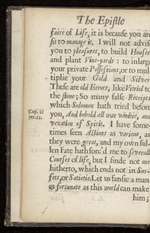 The Epistle
faire of Life, it is because you are
to manage it. I will not advise
you to pleasures, to build Houses
and plant Vine-yards: to inlarge
your private Possessions, or to mul-
tiplie your Gold and Silver.
These are old Errors, like Vitriol to
the stone; So many false Receipts
which Solomon hath tried before
you, And behold all was vanitie, and
vexation of Spirit. I have some-
times seen Actions as various, as
they were great, and my own sul-
len Fate hath forc'd me to severall
Courses of life, but I finde not one
hitherto, which ends not in Sur-
fets, or Satietie. Let us fansie a man
as fortunate as this world can make
him;